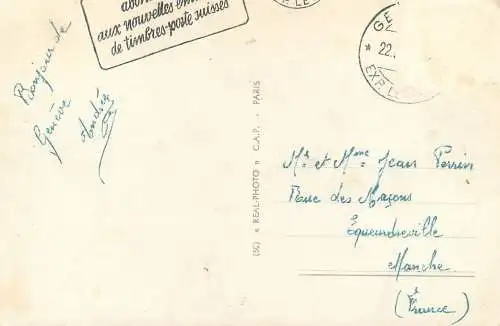 abon
aux nouvelles ém
de timbres-poste suisses
GE
22.
EXP. L
Bonjour de
Genève
André
(SC) « REAL-PHOTO » C.A.P. - PARIS
Mr et Mme Jean Perrin
Rue des Maçons
Equeurdreville
Manche
(France)